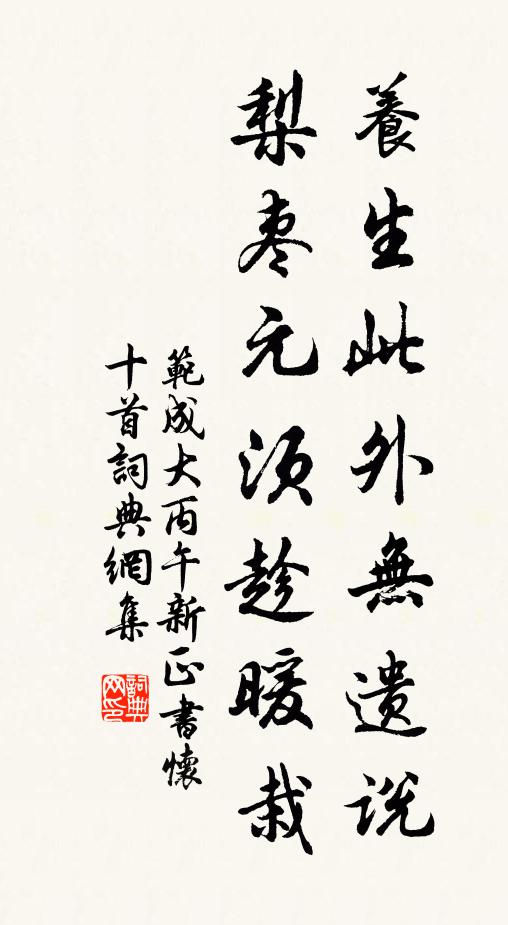 養生此外無遺説
梨枣元湏趁暖栽
範成大丙午新正書懷
十首詞典網集
詞典网印